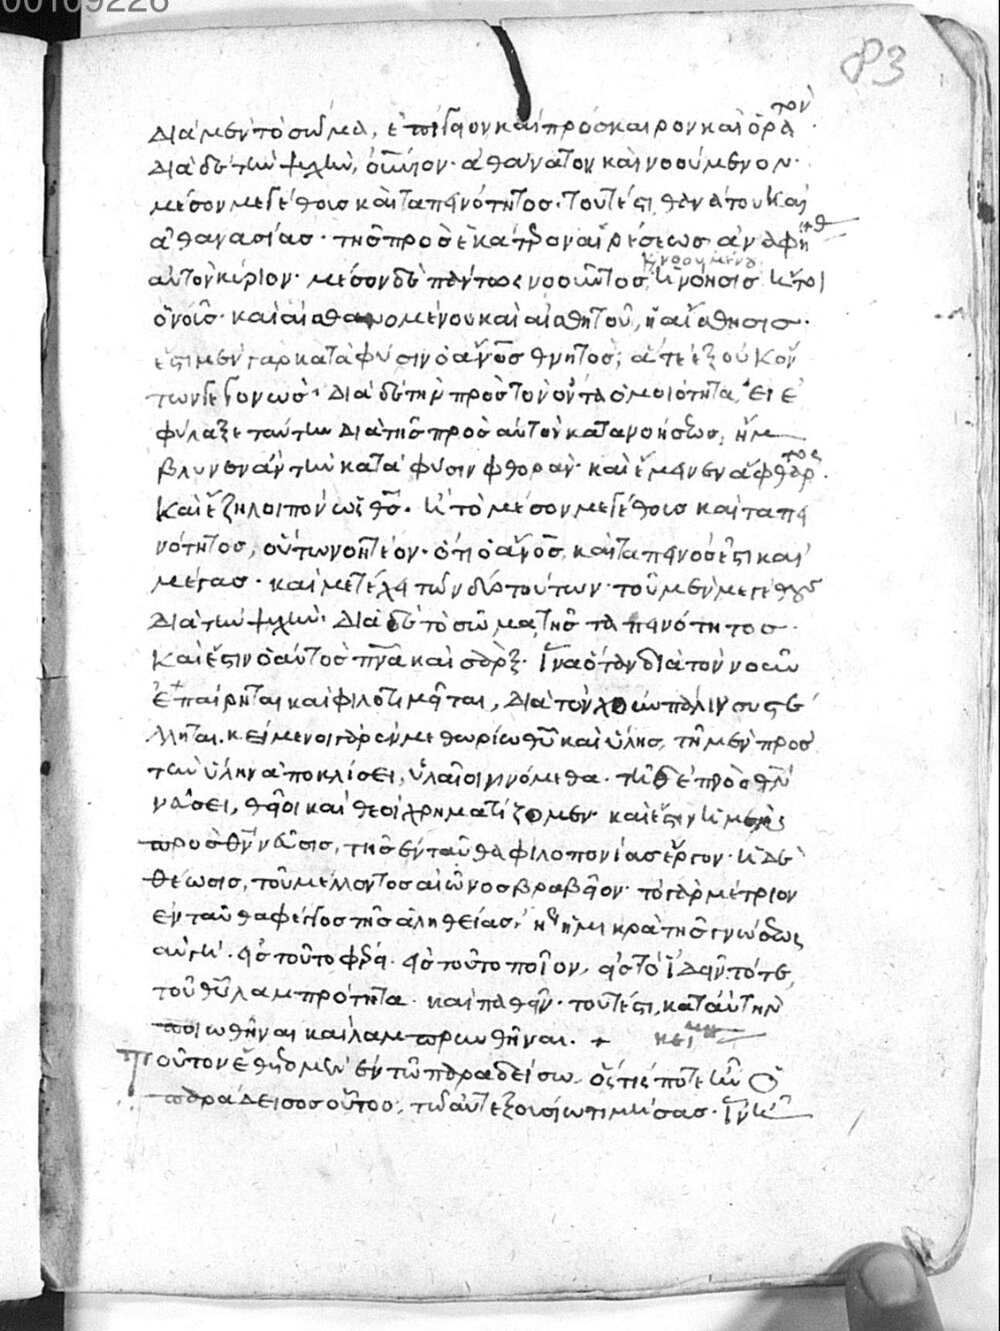 00109226
83
διὰ μὲν τὸ σῶμα, ἐπίγειον καὶ πρόσκαιρον καὶ ὁρατὸν·
διὰ δὲ τὴν ψυχὴν, οὐνιον· ἀθάνατον καὶ νοούμενον·
μέσον μεγέθους καὶ ταπεινότητος· τουτέστι, θανάτου καὶ
ἀθανασίας· τῆς πρὸς ἑκάτερον αἱρέσεως
αὐτὸν κύριον· μέσον δὲ πάντως νοοῦντος, καὶ νοουμένου ἡ νόησις ἤτοι
ὁ νοῦς· καὶ αἰσθανομένου καὶ αἰσθητοῦ, ἡ αἴσθησις·
ἔστι μὲν γὰρ κατὰ φύσιν ὁ ἄνος θνητὸς, ἅτε ἐξ οὐκ ὄν
των γεγονώς· διὰ δὲ τὴν πρὸς τὸν ὄντα ὁμοιότητα, εἰ ἐ
φύλαξε ταύτην διὰ τῆς πρὸς αὐτὸν κατανοήσεως, ἤμ
βλυνεν ἂν τὴν κατὰ φύσιν φθορὰν· καὶ ἔμεινεν ἄφθαρτος·
καὶ ἔζη λοιπὸν ὡς θς. ἢ τὸ μέσον μεγέθους καὶ ταπει
νότητος, οὕτω νοητέον· ὅτι ὁ ἄνος, καὶ ταπεινός ἐστι καὶ
μέγας· καὶ μετέχει τῶν δύο τούτων· τοῦ μὲν μεγέθους
διὰ τὴν ψυχὴν· διὰ δὲ τὸ σῶμα, τῆς ταπεινότητος·
καὶ ἔστιν ὁ αὐτὸς πνα καὶ σὰρξ· ἵνα ὅταν διὰ τὸν νοῦν
ἐπαίρηται καὶ φιλοτιμῆται, διὰ τὸν χοῦν πάλιν συστέ
λληται. κείμενοι γὰρ ἐν μεθωρίῳ θυ καὶ ὕλης, τῇ μὲν πρὸς
τὴν ὕλην ἀποκλίσει, ὑλαῖοι γινόμεθα· τῇ δὲ πρὸς θν
νεύσει, θεῖοι καὶ θεοὶ χρηματίζομεν· καὶ ἔστιν ἡ μὲν
πρὸς θν νεῦσις, τῆς ἐνταῦθα φιλοπονίας ἔργον· ἡ δὲ
θέωσις, τοῦ μέλλοντος αἰῶνος βραβεῖον· τὸ γὰρ μέτριον
ἐνταῦθα φέγγος τῆς ἀληθείας, ἤγουν ἡ μικρὰ τῆς γνώσεως
αὐγὴ· εἰς τοῦτο φέρει· εἰς τοῦτο ποῖον, εἰς τὸ ἰδεῖν τότε
τοῦ θυ λαμπρότητα· καὶ παθεῖν· τουτέστι, κατ' αὐτὴν
ποιωθῆναι καὶ λαμπρωθῆναι. +
κεί
Τοῦτον ἔθετο μὲν ἐν τῷ παραδείσῳ, ὅστις ποτὲ ἦν ὁ
παράδεισος οὗτος, τῷ αὐτεξουσίῳ τιμήσας· ἵν' ᾖ